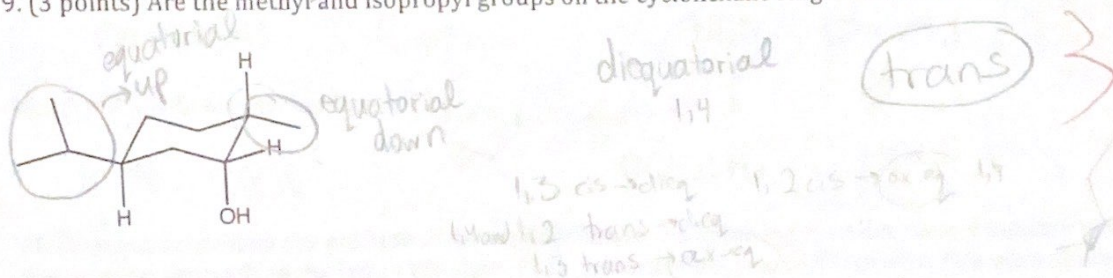 9. (3 points) Are the methyl and isopropyl groups on the
equatorial
up
H
equatorial
down
H
H
OH
diequatorial
1,4
trans
1,3 cis → dieq 1,2 cis → ax eq 1,4
1,4 and 1,2 trans → dieq
1,3 trans → ax-eq